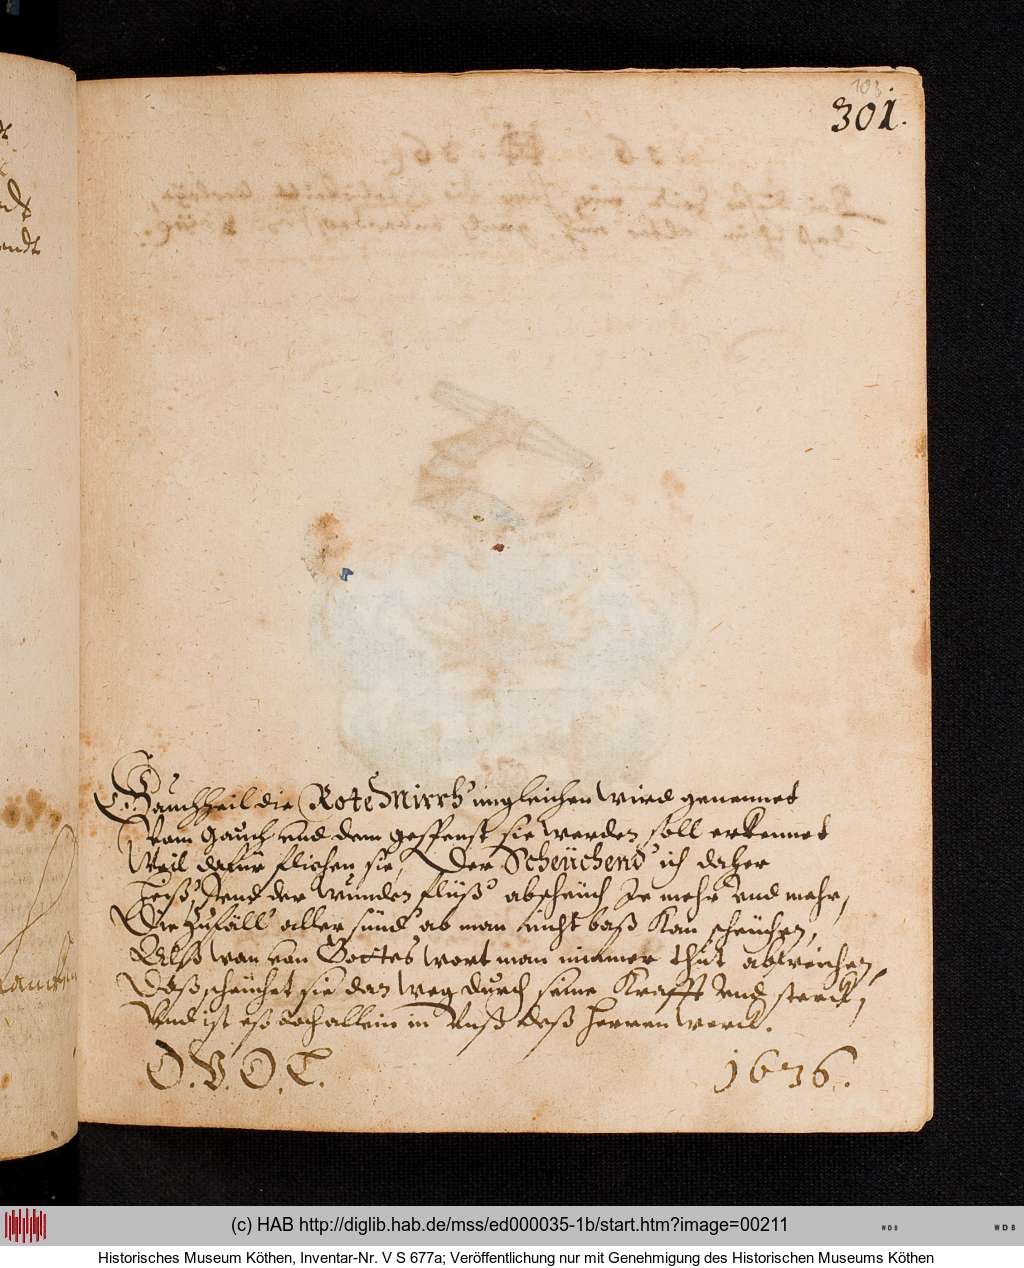 103
301.
Gauchheil die Rote Mirrh' ungleichen wird genennet
Vom Gauch und dem gespenst sie werden soll erkennet
Weil dafür fliehen sie, Der Scheüchend' ich daher
Hieß, Und der Wunden flüß' abscheüch Je mehr und mehr,
Die Zufäll' aller sünd' ab man nicht baß kan scheüchen,
Alß wan von Gottes Wort man nimmer thut abweichen,
Daß scheüchet sie dan weg durch seine Krafft und sterck,
Und ist eß doch allein in Unß deß Herren werck.
O. V. O. C. 1636.
(c) HAB http://diglib.hab.de/mss/ed000035-1b/start.htm?image=00211
WDB
WDB
Historisches Museum Köthen, Inventar-Nr. V S 677a; Veröffentlichung nur mit Genehmigung des Historischen Museums Köthen